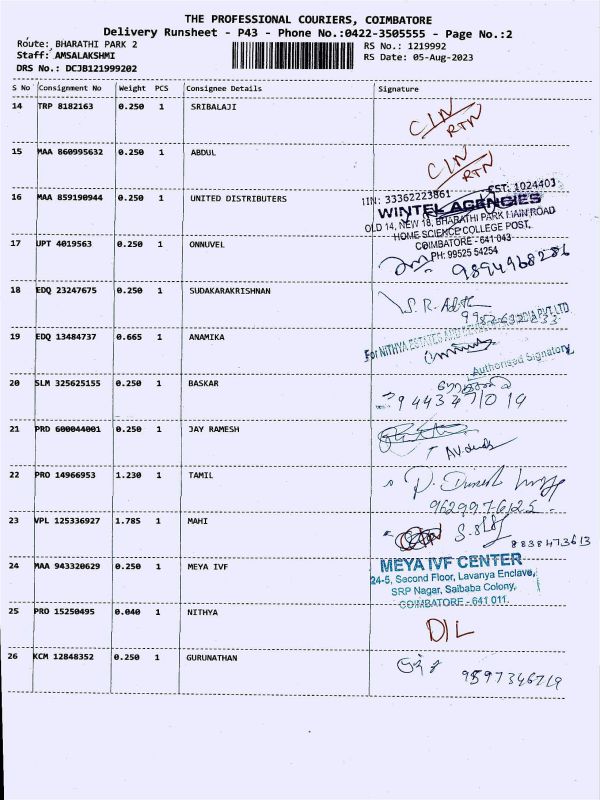 THE PROFESSIONAL COURIERS, COIMBATORE
Delivery Runsheet - P43 - Phone No.:0422-3505555 - Page No.:2
Route: BHARATHI PARK 2 RS No.: 1219992
Staff: AMSALAKSHMI RS Date: 05-Aug-2023
DRS No.: DCJB121999202
S No Consignment No Weight PCS Consignee Details Signature
14 TRP 8182163 0.250 1 SRIBALAJI CIN/RTN
15 MAA 860995632 0.250 1 ABDUL CIN/RTN
16 MAA 859190944 0.250 1 UNITED DISTRIBUTERS
33362223861 EST: 1024403
WINTEL AGENCIES
OLD 14, NEW 18, BHARATHI PARK MAIN ROAD
HOME SCIENCE COLLEGE POST,
COIMBATORE - 641 043
PH: 99525 54254
17 UPT 4019563 0.250 1 ONNUVEL
9894968286
18 EDQ 23247675 0.250 1 SUDAKARAKRISHNAN S. R.
19 EDQ 13484737 0.665 1 ANAMIKA
For NITHYA ESTATES AND PVT LTD
Authorised Signatory
20 SLM 325625155 0.250 1 BASKAR
21 PRD 600044001 0.250 1 JAY RAMESH
22 PRO 14966953 1.230 1 TAMIL
9629976125
23 VPL 125336927 1.785 1 MAHI
8838473613
24 MAA 943320629 0.250 1 MEYA IVF
MEYA IVF CENTER
24-5, Second Floor, Lavanya Enclave,
SRP Nagar, Saibaba Colony,
COIMBATORE - 641 011.
25 PRO 15250495 0.040 1 NITHYA D/L
26 KCM 12848352 0.250 1 GURUNATHAN
9597346719